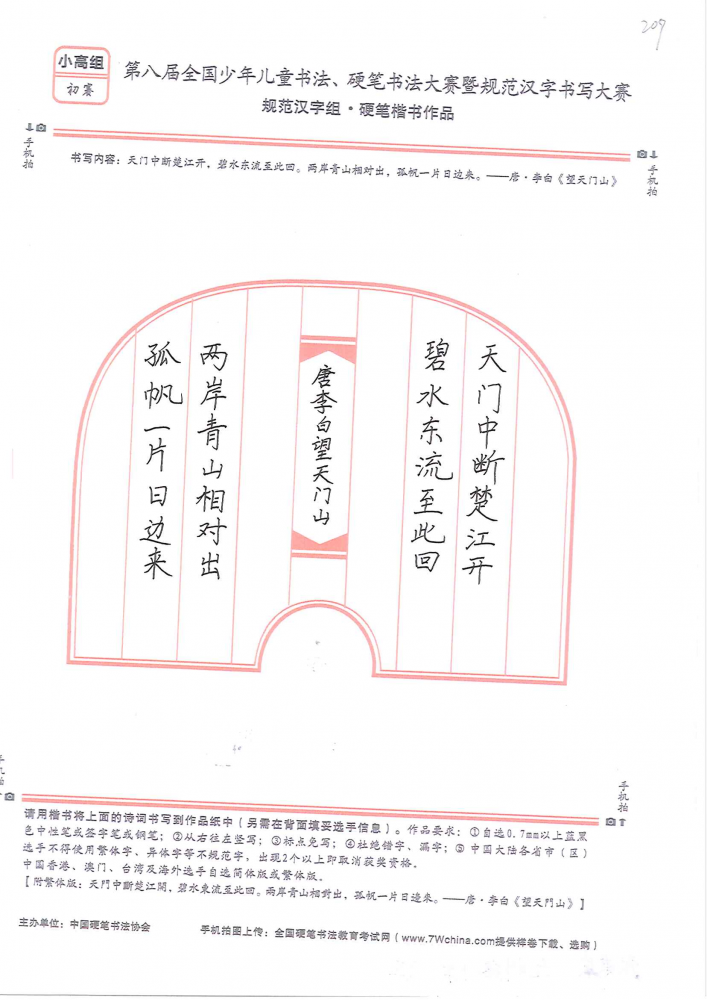 209
小高组
初赛
第八届全国少年儿童书法、硬笔书法大赛暨规范汉字书写大赛
规范汉字组·硬笔楷书作品
手机拍
手机拍
书写内容：天门中断楚江开，碧水东流至此回。两岸青山相对出，孤帆一片日边来。——唐·李白《望天门山》
天门中断楚江开
碧水东流至此回
唐李白望天门山
两岸青山相对出
孤帆一片日边来
手机拍
手机拍
请用楷书将上面的诗词书写到作品纸中（另需在背面填妥选手信息）。作品要求：①自选0.7mm以上蓝黑
色中性笔或签字笔或钢笔；②从右往左竖写；③标点免写；④杜绝错字、漏字；⑤中国大陆各省市（区）
选手不得使用繁体字、异体字等不规范字，出现2个以上即取消获奖资格。
中国香港、澳门、台湾及海外选手自选简体版或繁体版。
【附繁体版：天門中斷楚江開，碧水東流至此回。兩岸青山相對出，孤帆一片日邊來。——唐·李白《望天門山》】
主办单位：中国硬笔书法协会
手机拍图上传：全国硬笔书法教育考试网（www.7Wchina.com提供样卷下载、选购）